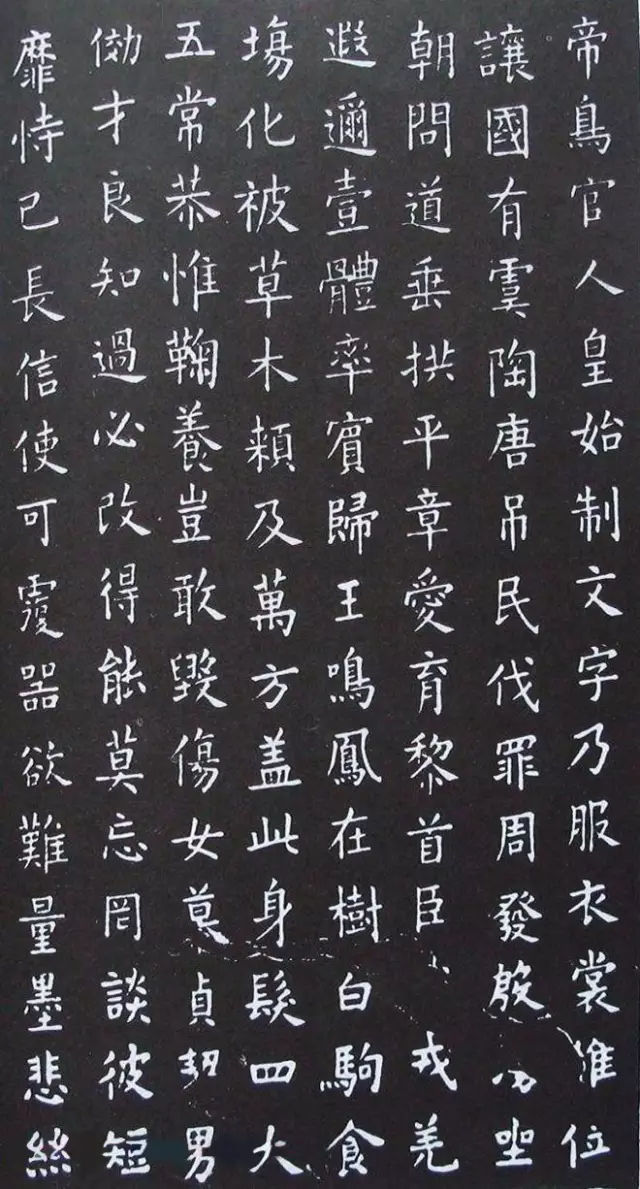 帝鳥官人皇始制文字乃服衣裳推位
讓國有虞陶唐吊民伐罪周發殷坐
朝問道垂拱平章愛育黎首臣戎羌
遐邇壹體率賓歸王鳴鳳在樹白駒食
塲化被草木頼及萬方盖此身髮四大
五常恭惟鞠養豈敢毀傷女慕貞男
効才良知過必改得能莫忘罔談彼短
靡恃己長信使可覆器欲難量墨悲絲